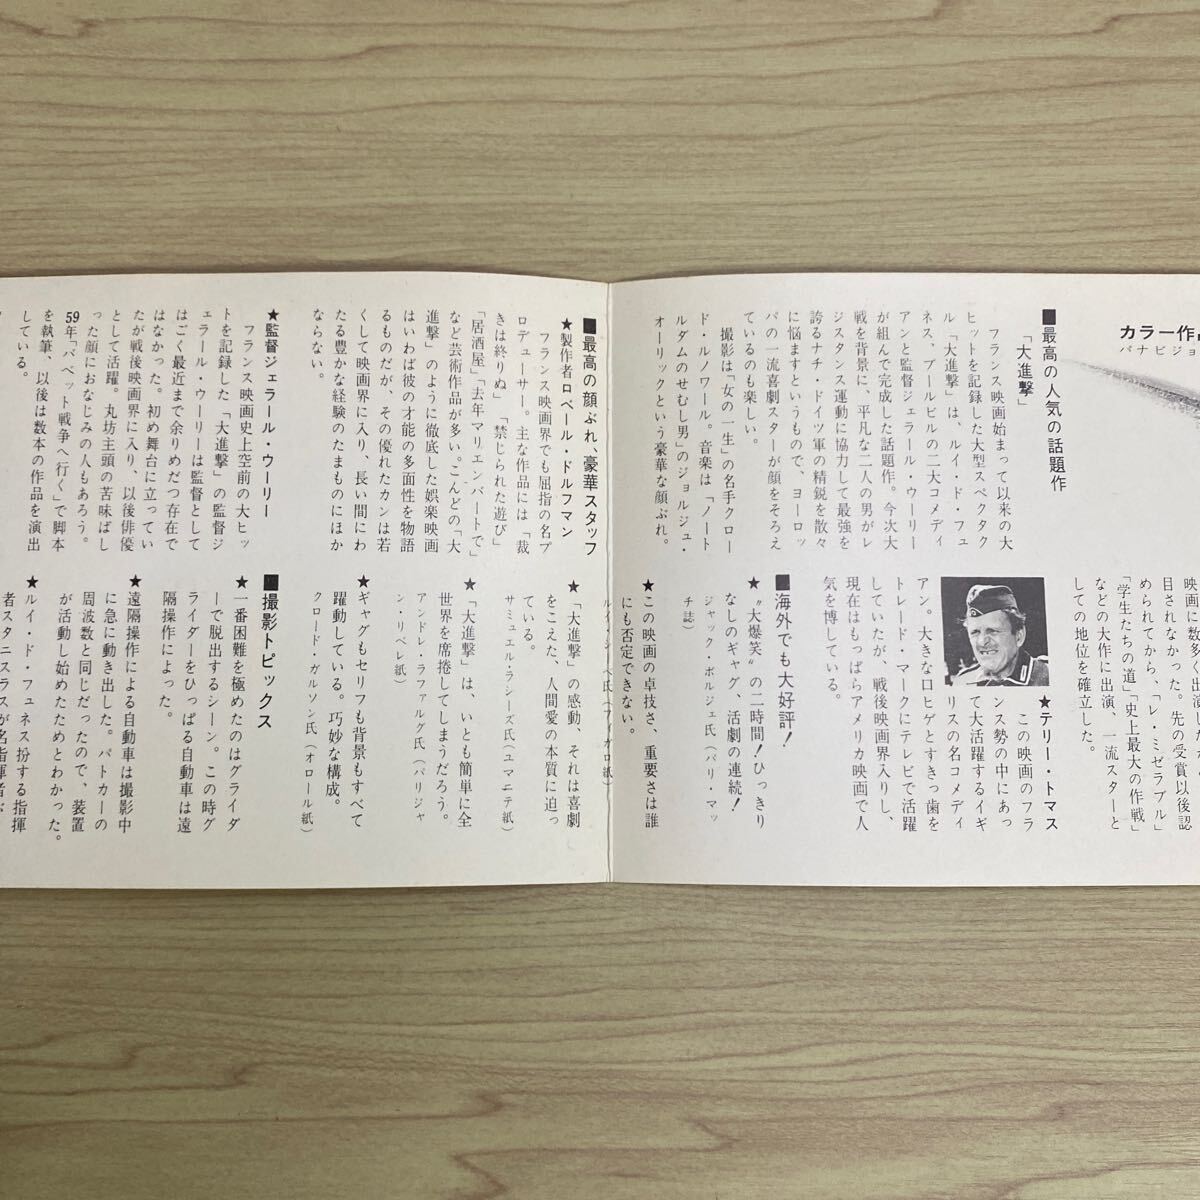 カラー作品
パナビジョ
■最高の人気の話題作
「大進撃」
フランス映画始まって以来の大
ヒットを記録した大型スペクタク
ル「大進撃」は、ルイ・ド・フュ
ネス、ブールビルの二大コメディ
アンと監督ジェラール・ウーリー
が組んで完成した話題作。今次大
戦を背景に、平凡な二人の男がレ
ジスタンス運動に協力して最強を
誇るナチ・ドイツ軍の精鋭を散々
に悩ますというもので、ヨーロッ
パの一流喜劇スターが顔をそろえ
ているのも楽しい。
撮影は「女の一生」の名手クロー
ド・ルノワール。音楽は「ノート
ルダムのせむし男」のジョルジュ・
オーリックという豪華な顔ぶれ。
■最高の顔ぶれ、豪華スタッフ
★製作者ロベール・ドルフマン
フランス映画界でも屈指の名プ
ロデューサー。主な作品には「裁
きは終りぬ」「禁じられた遊び」
「居酒屋」「去年マリエンバートで」
など芸術作品が多い。こんどの「大
進撃」のように徹底した娯楽映画
はいわば彼の才能の多面性を物語
るものだが、その優れたカンは若
くして映画界に入り、長い間にわ
たる豊かな経験のたまものにほか
ならない。
★監督ジェラール・ウーリー
フランス映画史上空前の大ヒッ
トを記録した「大進撃」の監督ジ
ェラール・ウーリーは監督として
はごく最近まで余りめだつ存在で
はなかった。初め舞台に立ってい
たが戦後映画界に入り、以後俳優
として活躍。丸坊主頭の苦味ばし
った顔におなじみの人もあろう。
59年「バベット戦争へ行く」で脚本
を執筆、以後は数本の作品を演出
している。
映画に数多く出演
目されなかった。
の男優賞受賞以後認
められてから、「レ・ミゼラブル」
「学生たちの道」「史上最大の作戦」
などの大作に出演、一流スターと
しての地位を確立した。
★テリー・トマス
この映画のフラ
ンス勢の中にあっ
て大活躍するイギ
リスの名コメディ
アン。大きな口ヒゲとすきっ歯を
トレード・マークにテレビで活躍
していたが、戦後映画界入りし、
現在はもっぱらアメリカ映画で人
気を博している。
■海外でも大好評!
★"大爆笑"の二時間!ひっきり
なしのギャグ、活劇の連続!
ジャック・ボルジェ氏(パリ・マッ
チ誌)
★この映画の卓技さ、重要さは誰
にも否定できない。
ルイ・シ ベ氏(フィガロ紙)
★「大進撃」の感動、それは喜劇
をこえた、人間愛の本質に迫っ
ている。
サミュエル・ラシーズ氏(ユマニテ紙)
★「大進撃」は、いとも簡単に全
世界を席捲してしまうだろう。
アンドレ・ラファルグ氏(パリジャ
ン・リベレ紙)
★ギャグもセリフも背景もすべて
躍動している。巧妙な構成。
クロード・ガルソン氏(オロール紙)
■撮影トピックス
★一番困難を極めたのはグライダ
ーで脱出するシーン。この時グ
ライダーをひっぱる自動車は遠
隔操作によった。
★遠隔操作による自動車は撮影中
に急に動き出した。パトカーの
周波数と同じだったので、装置
が活動し始めたためとわかった。
★ルイ・ド・フュネス扮する指揮
者スタニスラスが名指揮者ぶ